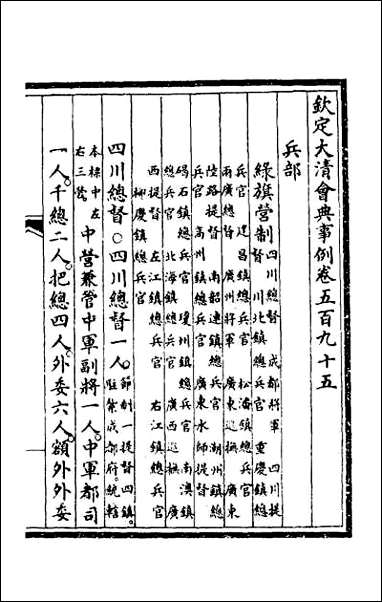 欽定大清會典事例卷五百九十五
兵部
綠旗營制 四川總督 成都將軍 四川提
督 川北鎮總兵官 重慶鎮總
兵官 建昌鎮總兵官 松潘鎮總兵官
兩廣總督 廣州將軍 廣東巡撫 廣東
陸路提督 南韶連鎮總兵官 潮州鎮總
兵官 高州鎮總兵官 廣東水師提督
碣石鎮總兵官 瓊州鎮總兵官 南澳鎮
總兵官 北海鎮總兵官 廣西巡撫 廣
西提督 左江鎮總兵官 右江鎮總兵官
柳慶鎮總兵官
四川總督○四川總督一人。節制一提督四鎮。駐紮成都府。統轄
本標中左右三營 中營兼管中軍副將一人。中軍都司
一人。千總二人。把總四人。外委六人。額外外委